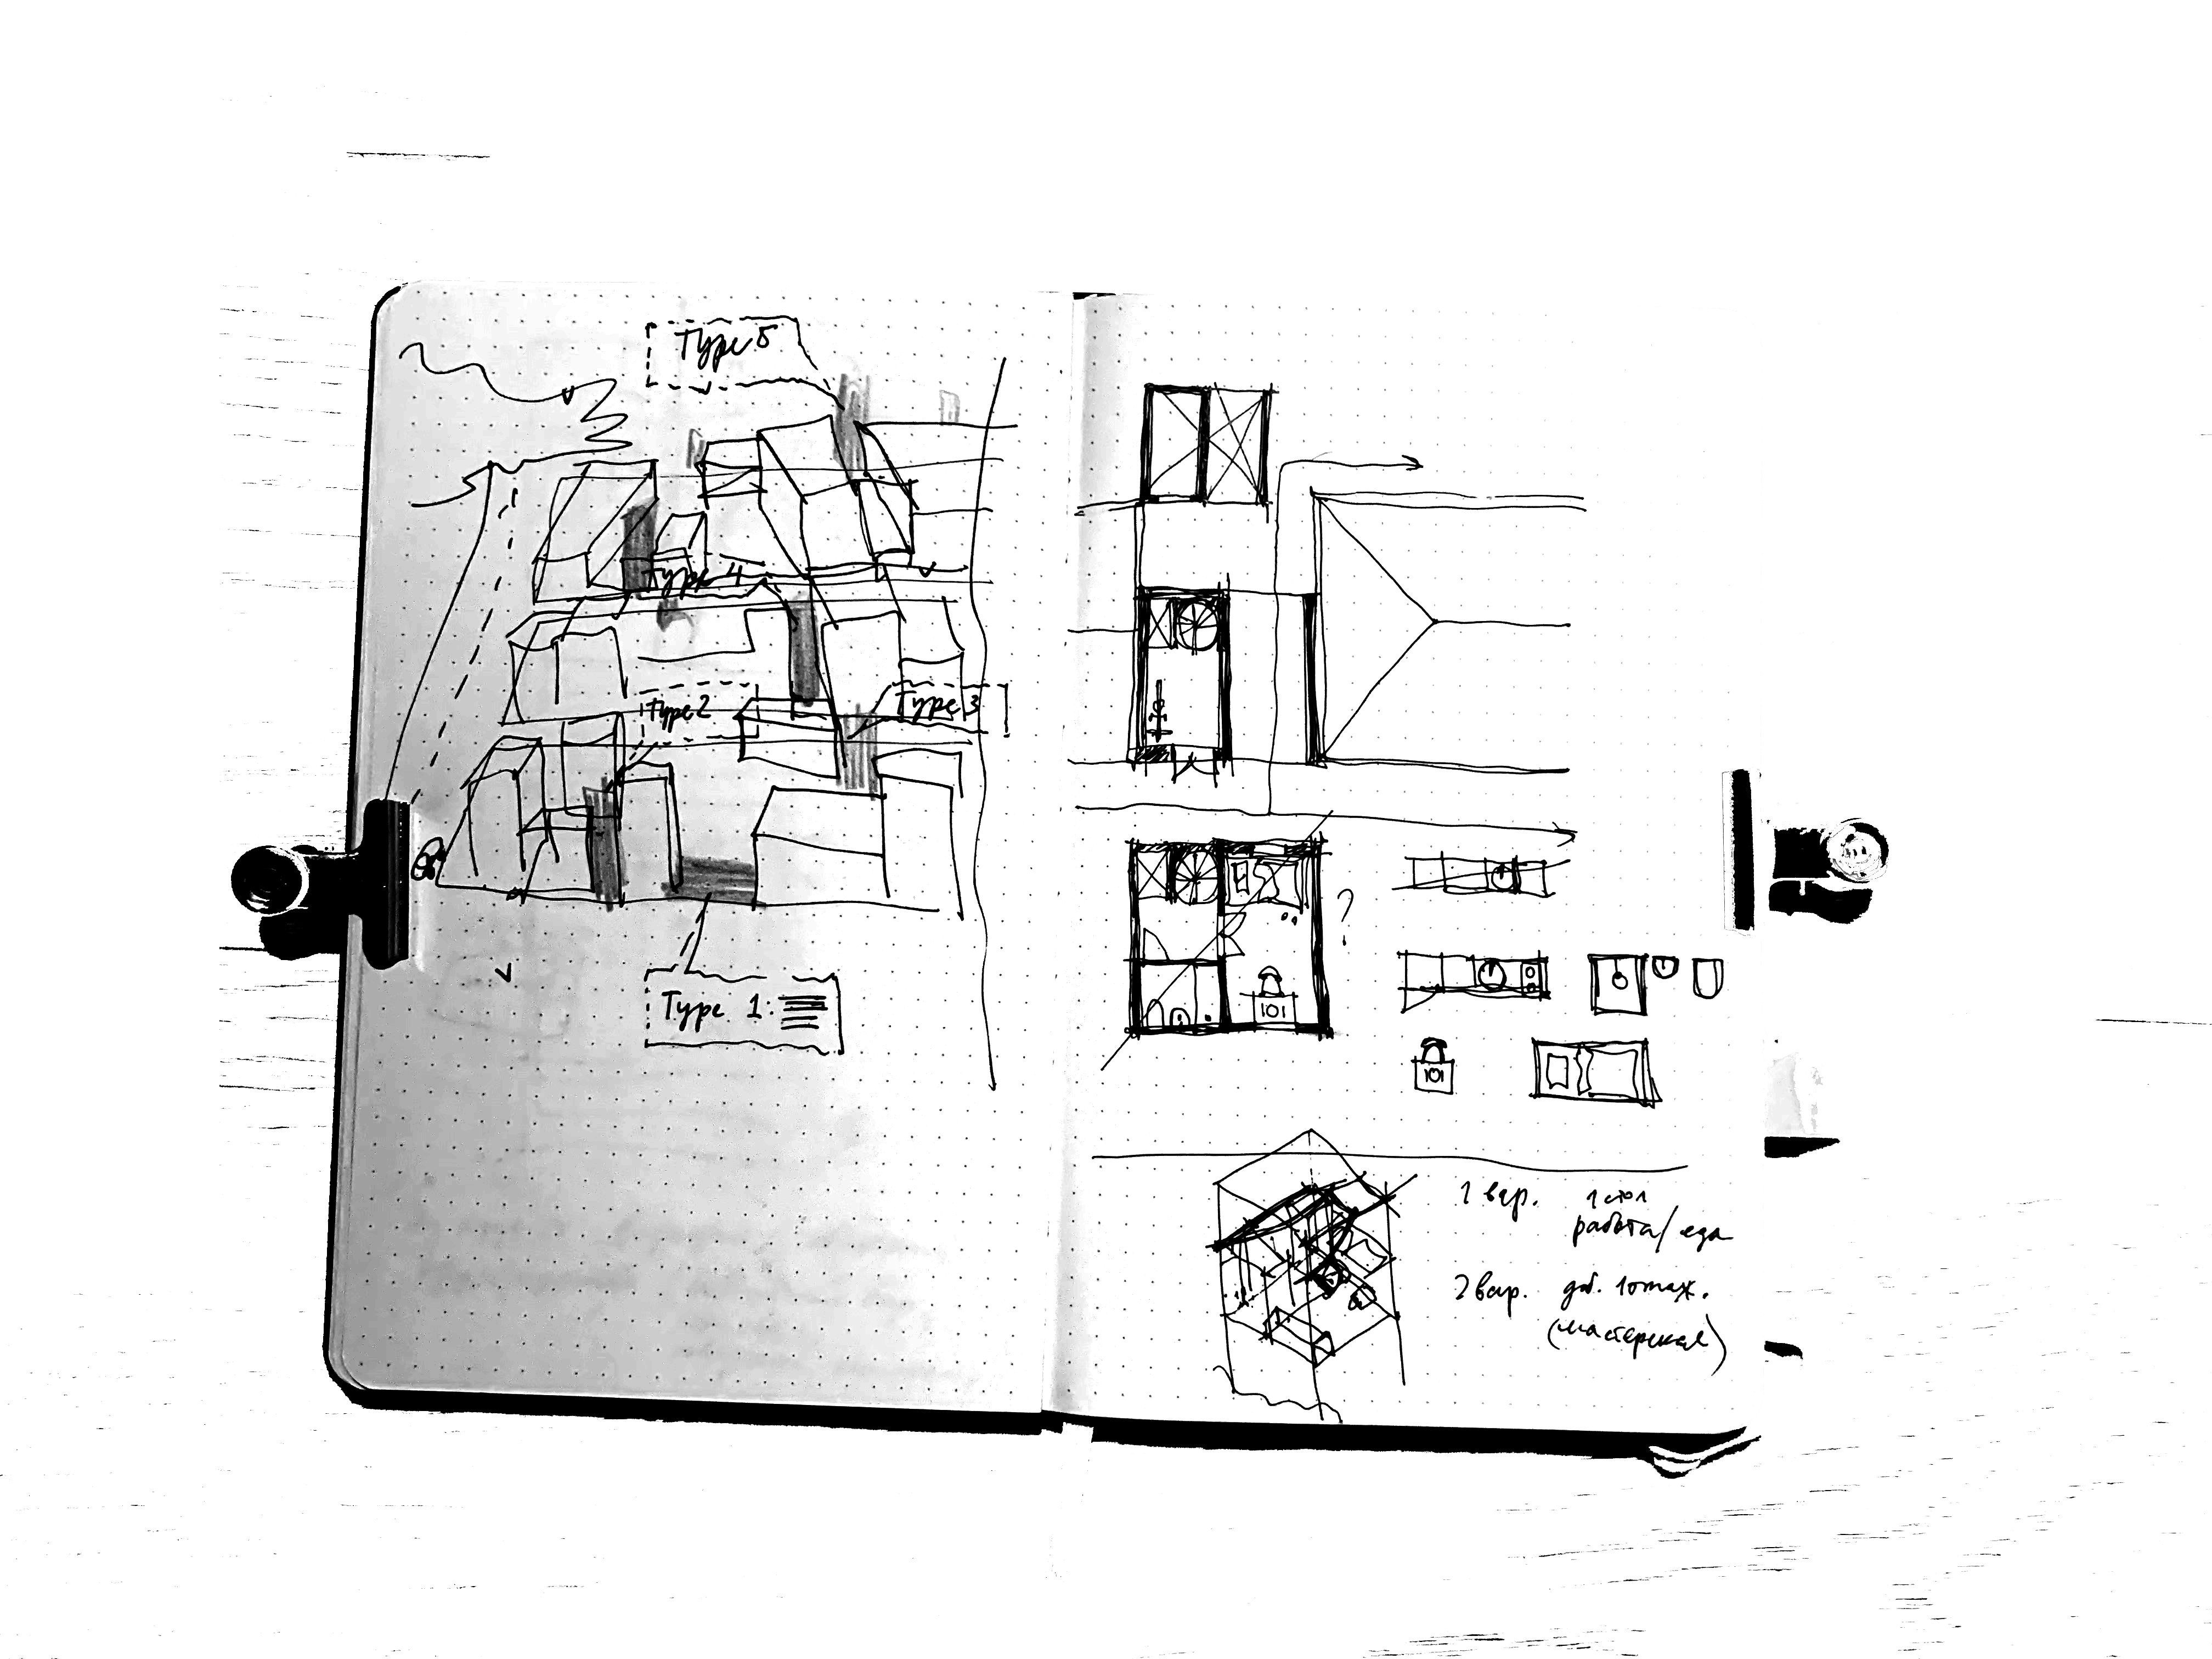 Type 5
Type 4
Type 2
Type 3
Type 1:
?
1 вар. 1 стол
работа/еда
2 вар. доб. 1 этаж.
(мастерская)